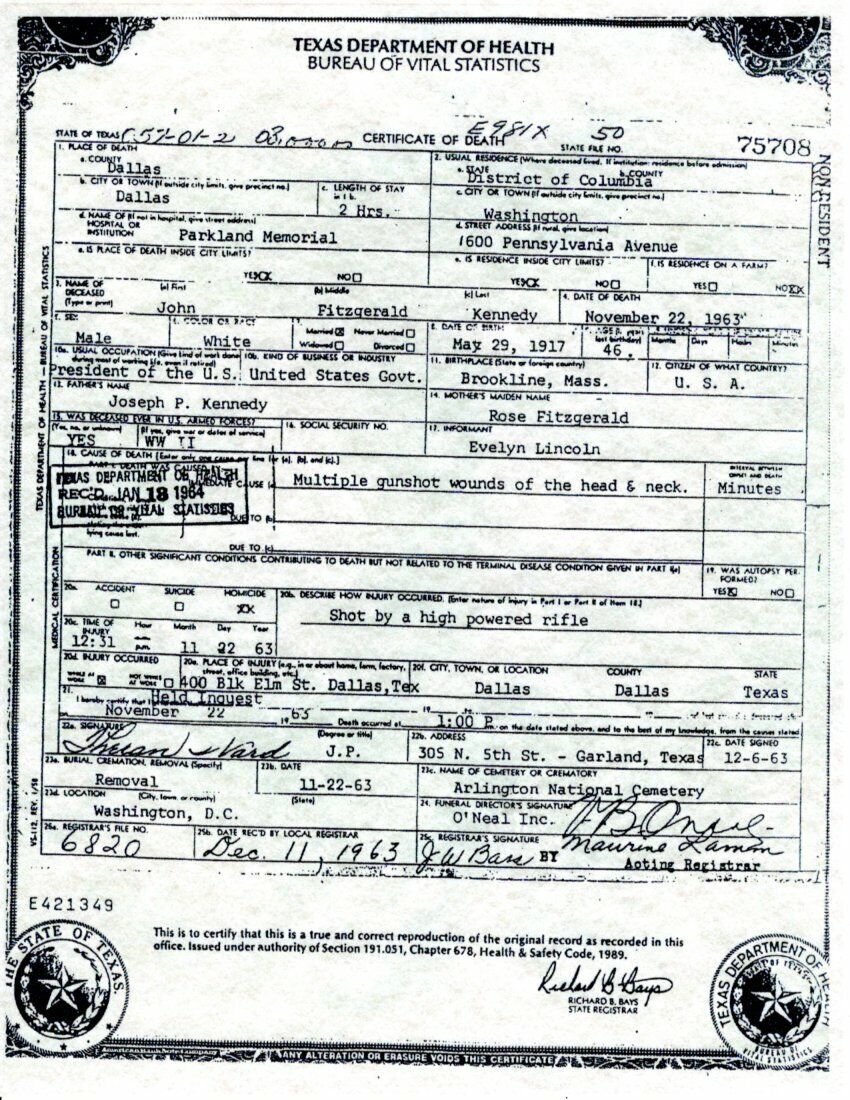 TEXAS DEPARTMENT OF HEALTH
BUREAU OF VITAL STATISTICS
STATE OF TEXAS CERTIFICATE OF DEATH E981X 50
STATE FILE NO. 75708
NON RESIDENT
TEXAS DEPARTMENT OF HEALTH — BUREAU OF VITAL STATISTICS
1. PLACE OF DEATH
a. COUNTY
Dallas
2. USUAL RESIDENCE (Where deceased lived. If institution: residence before admission)
a. STATE b. COUNTY
District of Columbia
b. CITY OR TOWN (If outside city limits, give precinct no.)
Dallas
c. LENGTH OF STAY
in 1 b.
2 Hrs.
c. CITY OR TOWN (If outside city limits, give precinct no.)
Washington
d. NAME OF (If not in hospital, give street address)
HOSPITAL OR
INSTITUTION
Parkland Memorial
d. STREET ADDRESS (If rural, give location)
1600 Pennsylvania Avenue
e. IS PLACE OF DEATH INSIDE CITY LIMITS?
YES XX NO
e. IS RESIDENCE INSIDE CITY LIMITS?
YES XX NO
f. IS RESIDENCE ON A FARM?
YES NO XX
3. NAME OF
DECEASED
(Type or print)
(a) First (b) Middle (c) Last
John Fitzgerald Kennedy
4. DATE OF DEATH
November 22, 1963
5. SEX
Male
6. COLOR OR RACE
White
7.
Married Never Married
Widowed Divorced
8. DATE OF BIRTH
May 29, 1917
last birthday)
46
Months Days Hours Minutes
10a. USUAL OCCUPATION (Give kind of work done
during most of working life, even if retired)
President of the U.S.
10b. KIND OF BUSINESS OR INDUSTRY
United States Govt.
11. BIRTHPLACE (State or foreign country)
Brookline, Mass.
12. CITIZEN OF WHAT COUNTRY?
U. S. A.
13. FATHER'S NAME
Joseph P. Kennedy
14. MOTHER'S MAIDEN NAME
Rose Fitzgerald
15. WAS DECEASED EVER IN U.S. ARMED FORCES?
(Yes, no, or unknown) (If yes, give war or dates of service)
YES WW II
16. SOCIAL SECURITY NO.
17. INFORMANT
Evelyn Lincoln
MEDICAL CERTIFICATION
18. CAUSE OF DEATH [Enter only one cause per line for (a), (b), and (c).]
PART I. DEATH WAS CAUSED
IMMEDIATE CAUSE (a)
Multiple gunshot wounds of the head & neck.
INTERVAL BETWEEN
ONSET AND DEATH
Minutes
TEXAS DEPARTMENT OF HEALTH
REC'D JAN 18 1964
BUREAU OF VITAL STATISTICS
DUE TO (b)
lying cause last.
DUE TO (c)
PART II. OTHER SIGNIFICANT CONDITIONS CONTRIBUTING TO DEATH BUT NOT RELATED TO THE TERMINAL DISEASE CONDITION GIVEN IN PART I(a)
19. WAS AUTOPSY PER-
FORMED?
YES NO
20a. ACCIDENT SUICIDE HOMICIDE
XX
20b. DESCRIBE HOW INJURY OCCURRED. (Enter nature of injury in Part I or Part II of Item 18.)
Shot by a high powered rifle
20c. TIME OF
INJURY
Hour Month Day Year
12:31 p.m. 11 22 63
20d. INJURY OCCURRED
WHILE AT
WORK
NOT WHILE
AT WORK
20e. PLACE OF INJURY (e.g., in or about home, farm, factory,
street, office building, etc.)
400 Blk Elm St. Dallas, Tex
20f. CITY, TOWN, OR LOCATION COUNTY STATE
Dallas Dallas Texas
21.
I hereby certify that I Held Inquest
November 22 1963 Death occurred at 1:00 P m. on the date stated above, and to the best of my knowledge, from the causes stated
22a. SIGNATURE (Degree or title)
Theran Ward J.P.
22b. ADDRESS
305 N. 5th St. - Garland, Texas
22c. DATE SIGNED
12-6-63
23a. BURIAL, CREMATION, REMOVAL (Specify)
Removal
23b. DATE
11-22-63
23c. NAME OF CEMETERY OR CREMATORY
Arlington National Cemetery
23d. LOCATION (City, town, or county) (State)
Washington, D.C.
24. FUNERAL DIRECTOR'S SIGNATURE
O'Neal Inc.
25a. REGISTRAR'S FILE NO.
6820
25b. DATE REC'D BY LOCAL REGISTRAR
Dec. 11, 1963
25c. REGISTRAR'S SIGNATURE
J W Bass BY Maurine Laman
Acting Registrar
VS-112 REV. 1/58
E421349
This is to certify that this is a true and correct reproduction of the original record as recorded in this
office. Issued under authority of Section 191.051, Chapter 678, Health & Safety Code, 1989.
Richard B Bays
RICHARD B. BAYS
STATE REGISTRAR
THE STATE OF TEXAS
TEXAS DEPARTMENT OF HEALTH
BUREAU OF VITAL STATISTICS
American Bank Note Company
ANY ALTERATION OR ERASURE VOIDS THIS CERTIFICATE